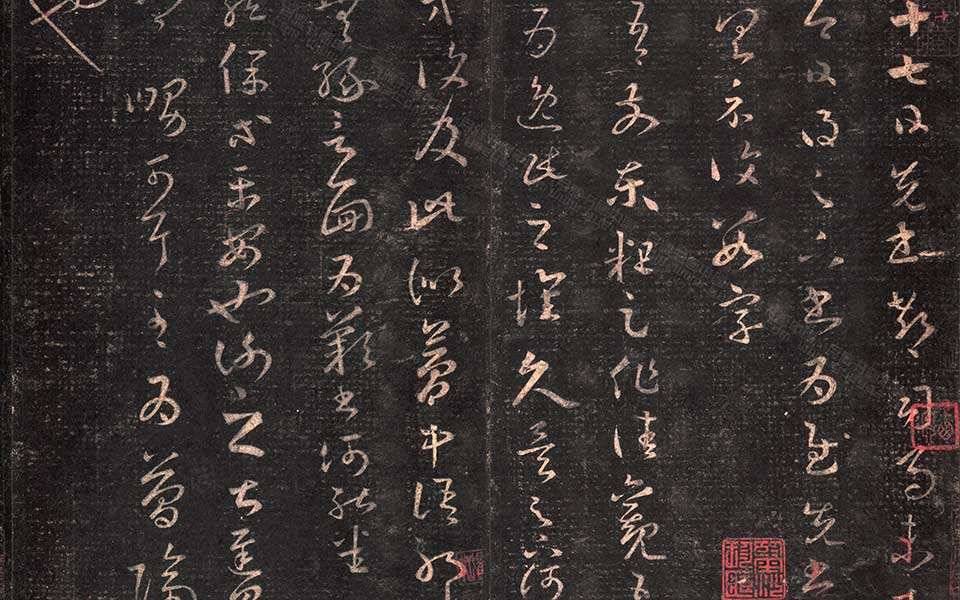 十七日先書郗司馬未
日得足下書為慰先書
具示復數字
吾前東粗足作佳觀
為逸民之懷久矣足下何
方復及此似夢中語耶
無緣言面為歎書何能悉
龍保等平安也謝之甚遲見
卿舅可耳至為簡隔
也